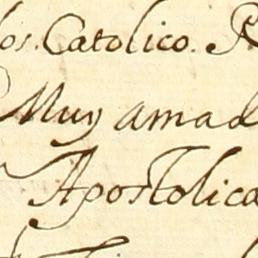 los. Catolico. R
Muy amad
Apostolica